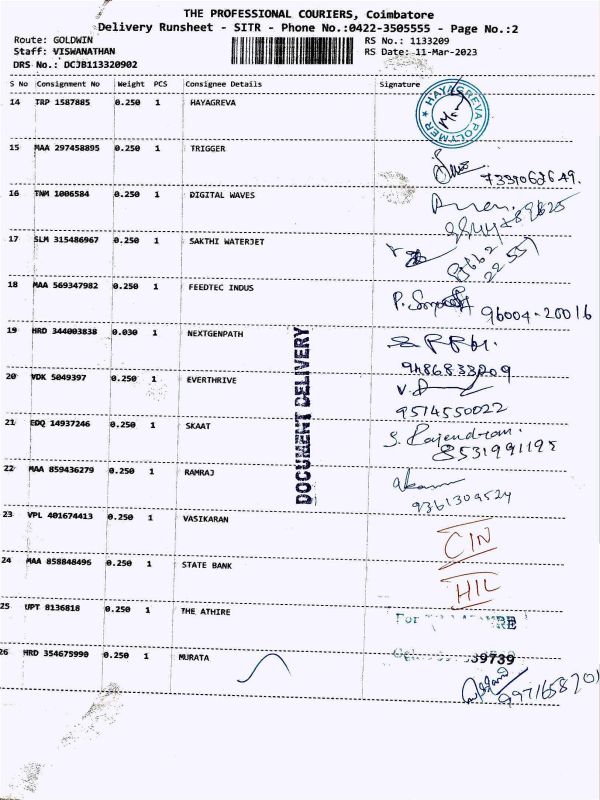 THE PROFESSIONAL COURIERS, Coimbatore
Delivery Runsheet - SITR - Phone No.:0422-3505555 - Page No.:2
Route: GOLDWIN RS No.: 1133209
Staff: VISWANATHAN RS Date: 11-Mar-2023
DRS No.: DCJB113320902
S No Consignment No Weight PCS Consignee Details Signature
14 TRP 1587885 0.250 1 HAYAGREVA
HAYAGREVA POLYMER
15 MAA 297458895 0.250 1 TRIGGER
16 TNM 1006584 0.250 1 DIGITAL WAVES
17 SLM 315486967 0.250 1 SAKTHI WATERJET
18 MAA 569347982 0.250 1 FEEDTEC INDUS
96004-20016
19 HRD 344003838 0.030 1 NEXTGENPATH
DOCUMENT DELIVERY
9486833209
20 VDK 5049397 0.250 1 EVERTHRIVE
9514550022
21 EDQ 14937246 0.250 1 SKAAT
S. Rajendran.
8531991195
22 MAA 859436279 0.250 1 RAMRAJ
9361309524
23 VPL 401674413 0.250 1 VASIKARAN
CIN
24 MAA 858848496 0.250 1 STATE BANK
HIL
25 UPT 8136818 0.250 1 THE ATHIRE
For
39739
26 HRD 354675990 0.250 1 MURATA